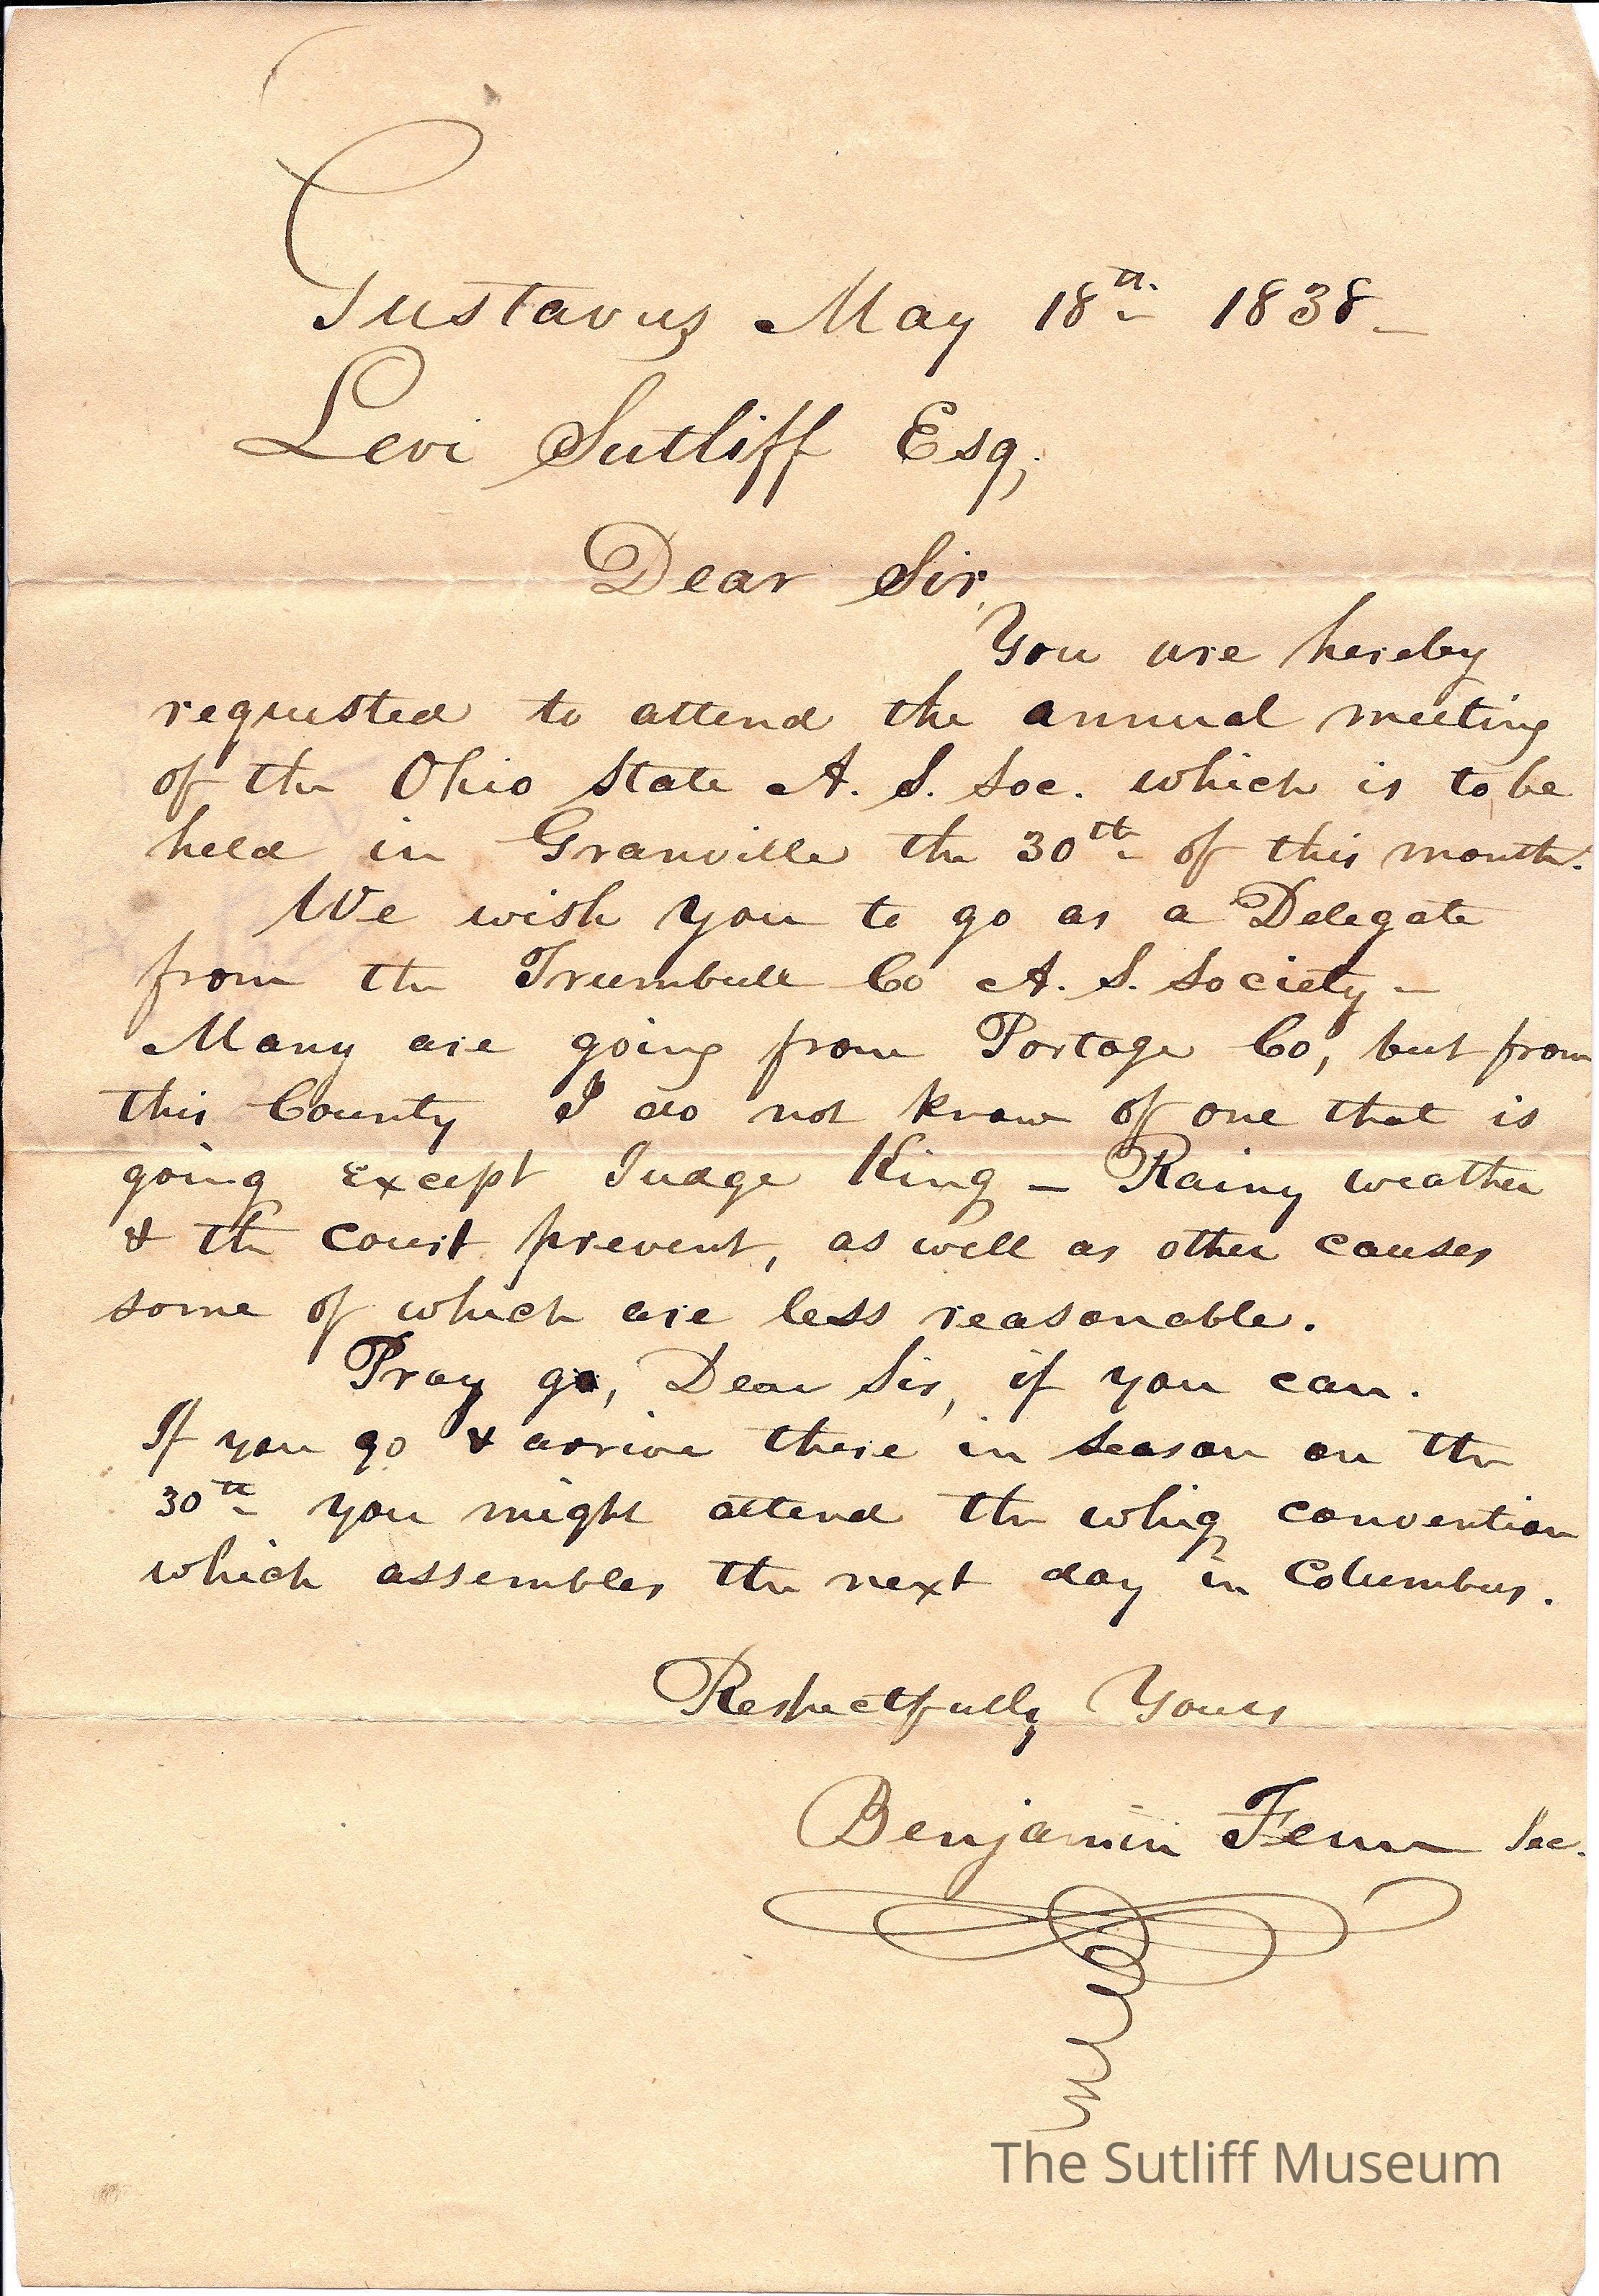 Gustavus May 18th 1838 _
Levi Sutliff Esq;
Dear Sir,
You are hereby
requested to attend the annual meeting
of the Ohio State A. S. Soc. which is to be
held in Granville the 30th of this month.
We wish you to go as a Delegate
from the Trumbull Co A. S. Society –
Many are going from Portage Co, but from
this County I do not know of one that is
going except Judge King – Rainy weather
& the court prevent, as well as other causes
some of which are less reasonable.
Pray go, Dear Sir, if you can.
If you go & arrive there in season on the
30th you might attend the whig convention
which assembles the next day in Columbus.
Respectfully Yours
Benjamin Fenn Sec.
The Sutliff Museum